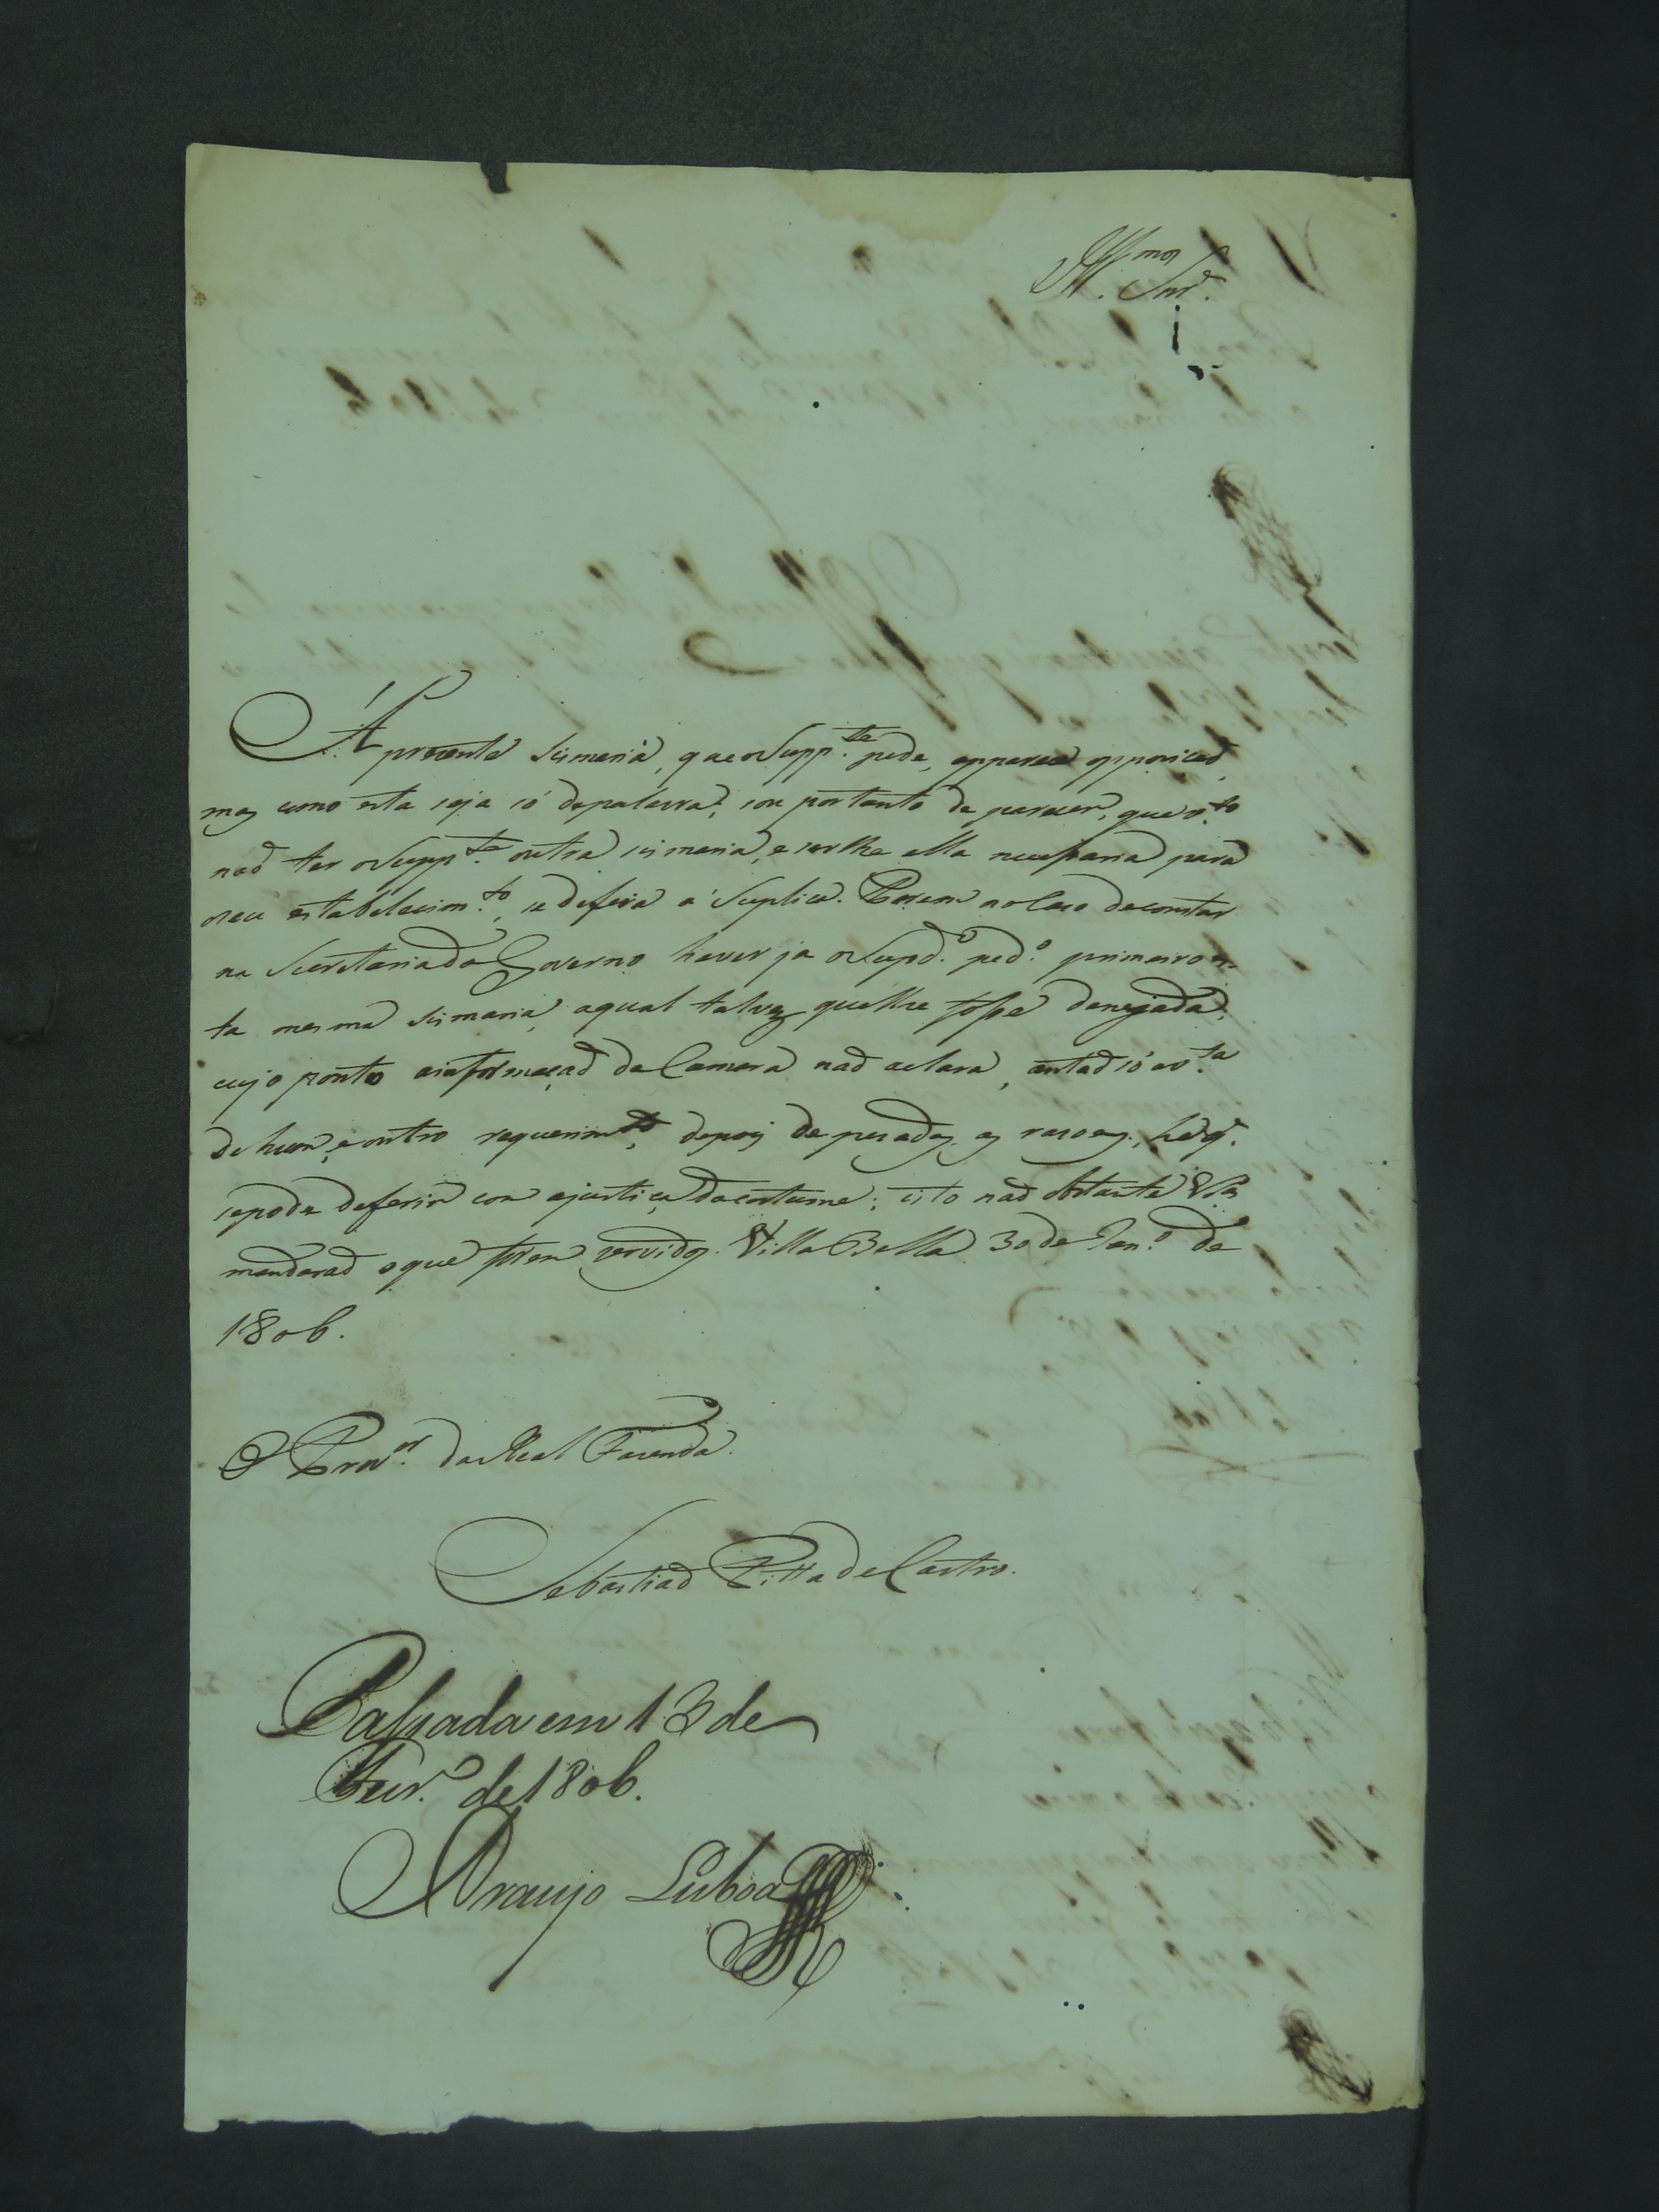 Ill.mos Snr.es
Á prezente sismaria, que o Supp.te pede, apparece opposicaõ,
mas como esta seja só de palavra; sou portanto de parecer, que v.to
naõ ter o Supp.te outra sismaria, e ser lhe ella necessaria para
o seu estabelecim.to, se defira á Suplica. Porem no Cazo de constar
na Secretaria do Governo haver ja o Supd.o ped.o primeiro es-
ta mesma sismaria, a qual talvez que lhe fosse denegada;
cujo ponto a informaçaõ da Camera naõ aclara, entaõ só a v.ta
de hum, e outro requerim.to, depois de pesadas as rasoens, he q.
se pode deferir com a justiça do costume; isto naõ obstante VS.as
mandaraõ o que forem servidos. Villa Bella 30 de Jan.o de
1806.
O Prov.or da Real Fazenda.
Sebastiaõ Pitta de Castro.
Passada em 13 de
Fevr.o de 1806.
Araujo Lisboa